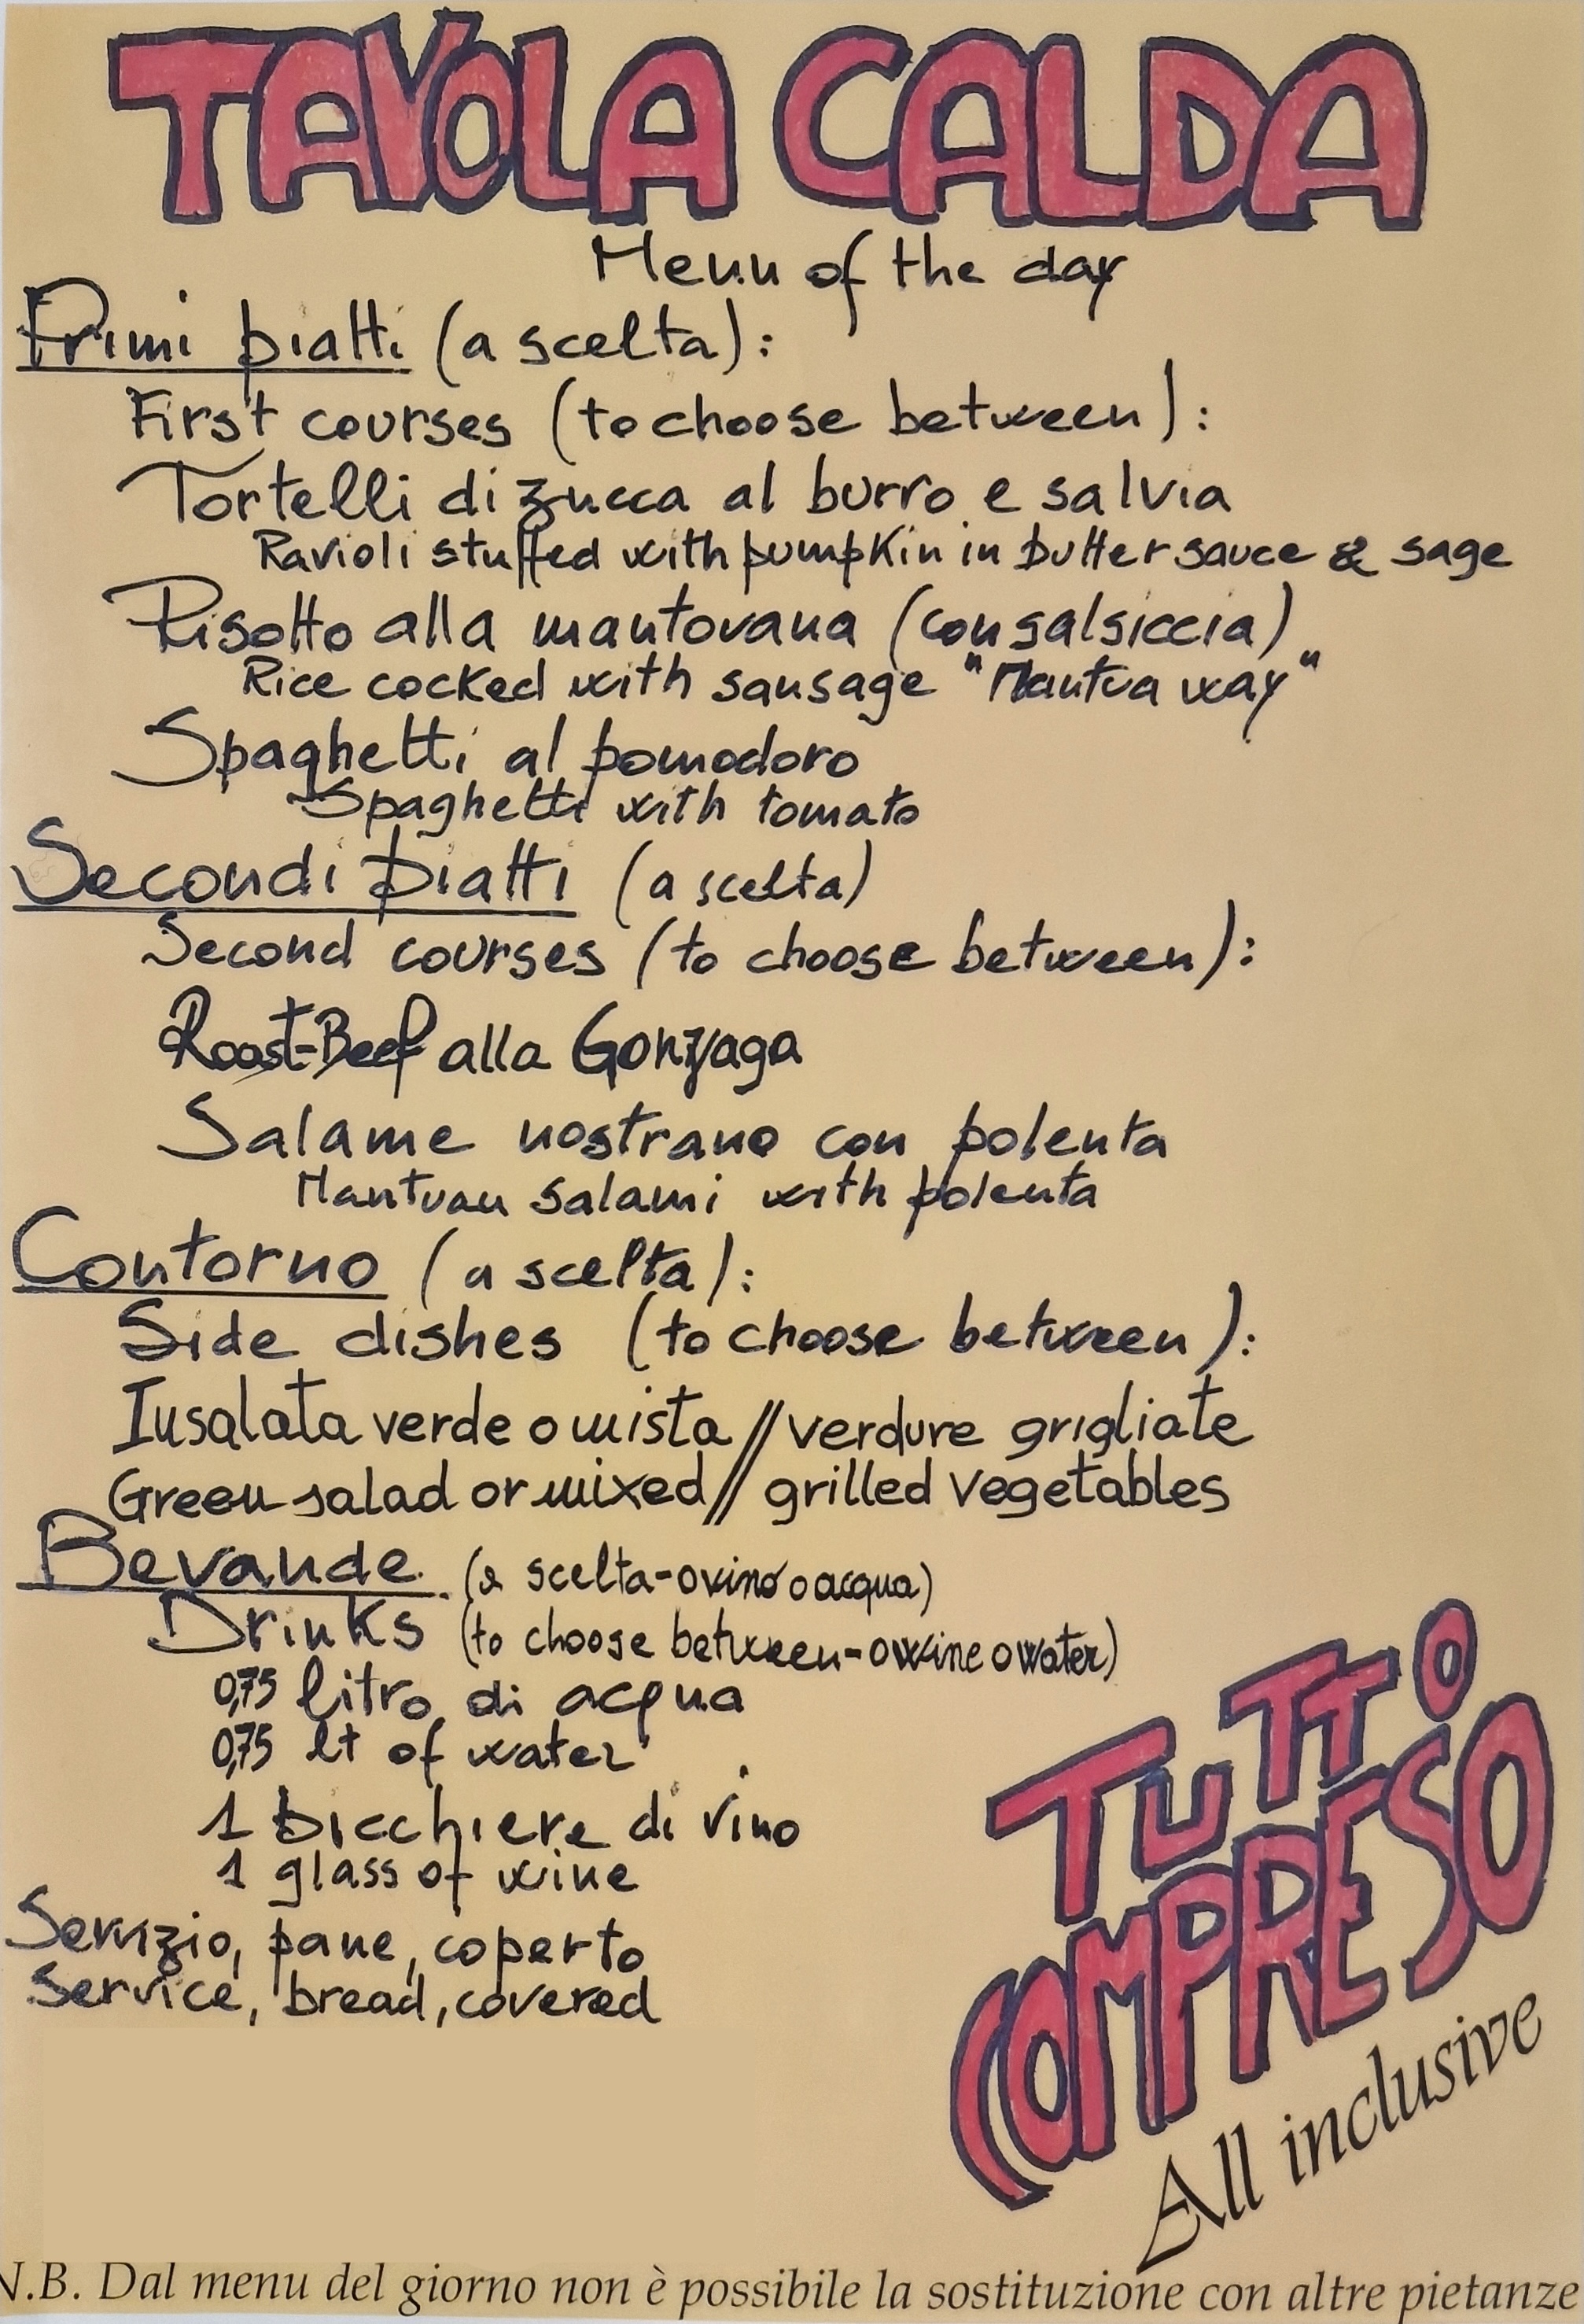 TAVOLA CALDA
Menu of the day
Primi piatti (a scelta):
First courses (to choose between):
Tortelli di zucca al burro e salvia
Ravioli stuffed with pumpkin in butter sauce & sage
Risotto alla mantovana (con salsiccia)
Rice cocked with sausage "Mantua way"
Spaghetti al pomodoro
Spaghetti with tomato
Secondi piatti (a scelta)
Second courses (to choose between):
Roast-Beef alla Gonzaga
Salame nostrano con polenta
Mantuan salami with polenta
Contorno (a scelta):
Side dishes (to choose between):
Insalata verde o mista // verdure grigliate
Green salad or mixed // grilled vegetables
Bevande (a scelta-o vino o acqua)
Drinks (to choose between-o wine o water)
0,75 litro di acqua
0,75 lt of water
1 bicchiere di vino
1 glass of wine
Servizio, pane, coperto
Service, bread, covered
TUTTO
COMPRESO
All inclusive
N.B. Dal menu del giorno non è possibile la sostituzione con altre pietanze